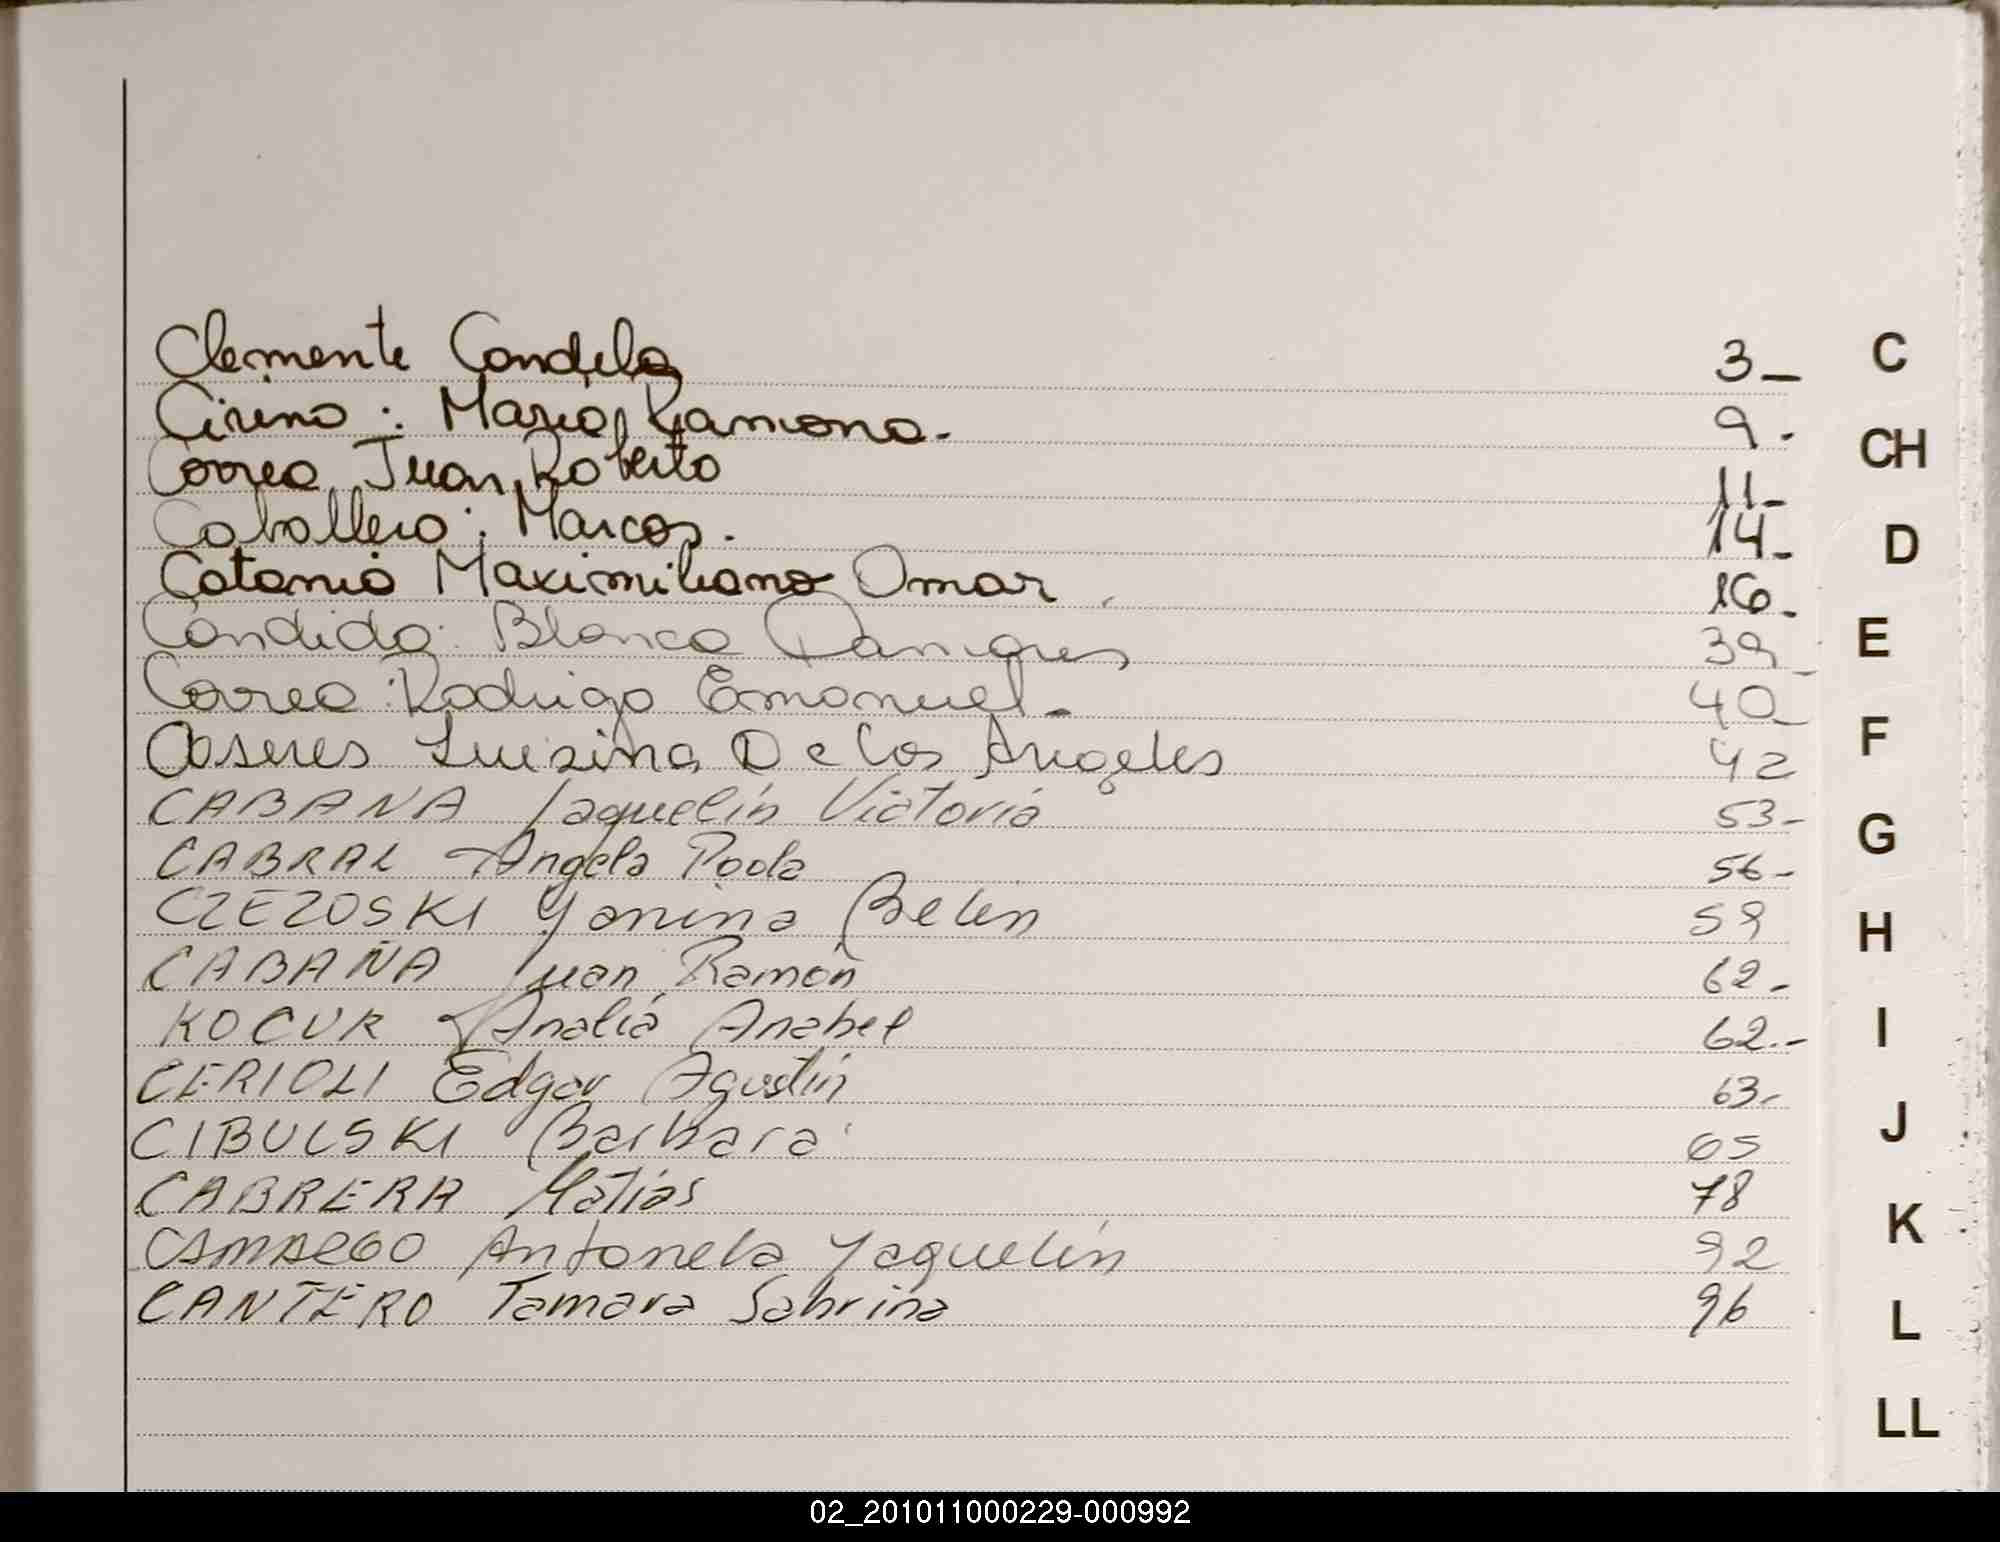 Clemente Candela 3_
C
Cirino : Maria Ramona. 9.
CH
Correa Juan Roberto 11_
Caballero : Marcos. 14_
D
Catania Maximiliano Omar 16_
Candido: Blanca 39_
E
Correa : Rodrigo Emanuel_ 40_
F
Caseres Luisina De los Angeles 42
CABAÑA Jaquelin Victoria 53_
G
CABRAL Angela Paola 56_
CZEZOSKI Yanina Belén 59
H
CABAÑA Juan Ramón 62_
KOCUR Analía Anabel 62._
I
CERIOLI Edgar Agustín 63_
J
CIBULSKI Barbara 65
CABRERA Matías 78
K
CAMARGO Antonela Yaquelín 92
CANTERO Tamara Sabrina 96
L
LL
02_201011000229-000992